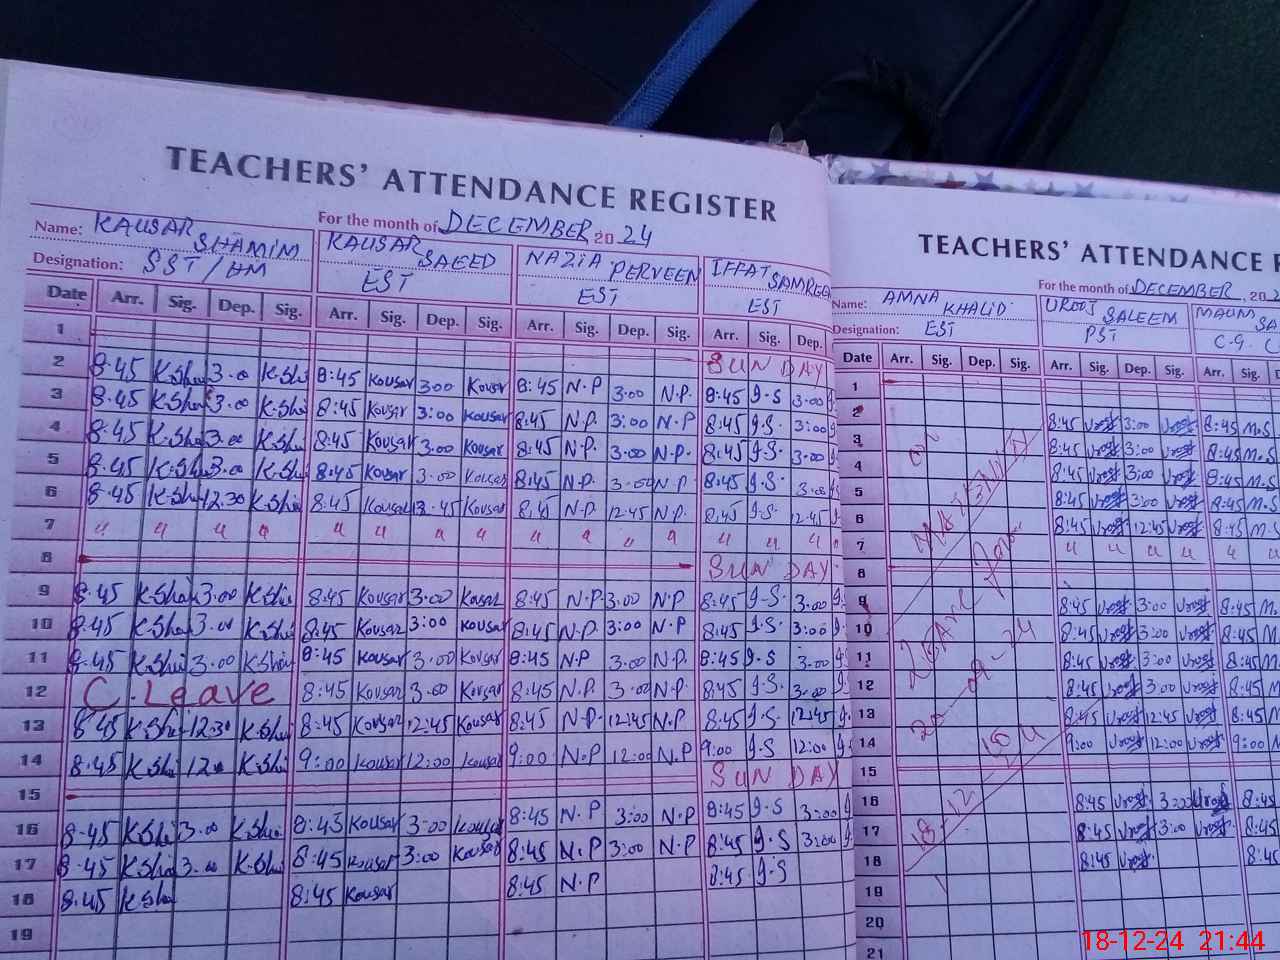 TEACHERS' ATTENDANCE REGISTER
For the month of DECEMBER 2024
Name: KAUSAR SHAMIM KAUSAR SAEED NAZIA PERVEEN IFFAT
Designation: SST/HM EST EST EST
Date Arr. Sig. Dep. Sig. Arr. Sig. Dep. Sig. Arr. Sig. Dep. Sig. Arr. Sig. Dep.
1 SUN DAY
2 8:45 K.Sha 3.00 K.Sha 8:45 Kousar 3:00 Kousar 8:45 N.P 3:00 N.P. 8:45 I.S 3:00
3 8:45 K.Sha 3.00 K.Sha 8:45 Kousar 3:00 Kousar 8:45 N.P. 3:00 N.P 8:45 I.S. 3:00
4 8:45 K.Sha 3.00 K.Sha 8:45 Kousar 3:00 Kousar 8:45 N.P. 3:00 N.P. 8:45 I.S. 3:00
5 8:45 K.Sha 3.00 K.Sha 8:45 Kousar 3:00 Kousar 8:45 N.P. 3:00 N.P 8:45 I.S. 3:00
6 8:45 K.Sha 12.30 K.Sha 8:45 Kousar 12.45 Kousar 8:45 N.P. 12:45 N.P. 8:45 I.S. 12:45
7 " " " " " " " " " " " " " " "
8 SUN DAY
9 8:45 K.Sha 3.00 K.Sha 8:45 Kousar 3:00 Kousar 8:45 N.P 3:00 N.P 8:45 I.S. 3:00
10 8:45 K.Sha 3.00 K.Sha 8:45 Kousar 3:00 Kousar 8:45 N.P. 3:00 N.P 8:45 I.S. 3:00
11 8:45 K.Sha 3.00 K.Sha 8:45 Kousar 3:00 Kousar 8:45 N.P 3:00 N.P. 8:45 I.S 3:00
12 C. Leave 8:45 Kousar 3:00 Kousar 8:45 N.P. 3:00 N.P. 8:45 I.S. 3:00
13 8:45 K.Sha 12:30 K.Sha 8:45 Kousar 12:45 Kousar 8:45 N.P. 12:45 N.P 8:45 I.S. 12:45
14 8:45 K.Sha K.Sha 9:00 Kousar 12:00 Kousar 9:00 N.P 12:00 N.P 9:00 I.S 12:00
15 SUN DAY
16 8:45 K.Sha 3.00 K.Sha 8:45 Kousar 3:00 Kousar 8:45 N.P 3:00 N.P 8:45 I.S 3:00
17 8:45 K.Sha 3.00 K.Sha 8:45 Kousar 3:00 Kousar 8:45 N.P 3:00 N.P 8:45 I.S 3:00
18 8:45 K.Sha 8:45 Kousar 8:45 N.P 8:45 I.S
19
TEACHERS' ATTENDANCE
For the month of DECEMBER, 20
Name: AMNA KHALID UROOJ SALEEM
Designation: EST PST
Date Arr. Sig. Dep. Sig. Arr. Sig. Dep. Sig. Arr. Sig.
1
2 8:45 Urooj 3:00 Urooj 8:45 M.S
3 8:45 Urooj 3:00 Urooj 8:45 M.S
4 8:45 Urooj 3:00 Urooj 8:45 M.S
5 8:45 Urooj 3:00 Urooj 8:45 M.S
6 8:45 Urooj 12:45 Urooj 8:45 M.S
7 " " " " " "
8
9 8:45 Urooj 3:00 Urooj 8:45
10 8:45 Urooj 3:00 Urooj 8:45
11 8:45 Urooj 3:00 Urooj 8:45
12 8:45 Urooj 3:00 Urooj 8:45
13 8:45 Urooj 12:45 Urooj 8:45
14 9:00 Urooj 12:00 Urooj 9:00
15
16 8:45 Urooj 3:00 Urooj 8:45
17 8:45 Urooj 3:00 Urooj 8:45
18 8:45 Urooj 8:45
19
20
21
18-12-24 21:44